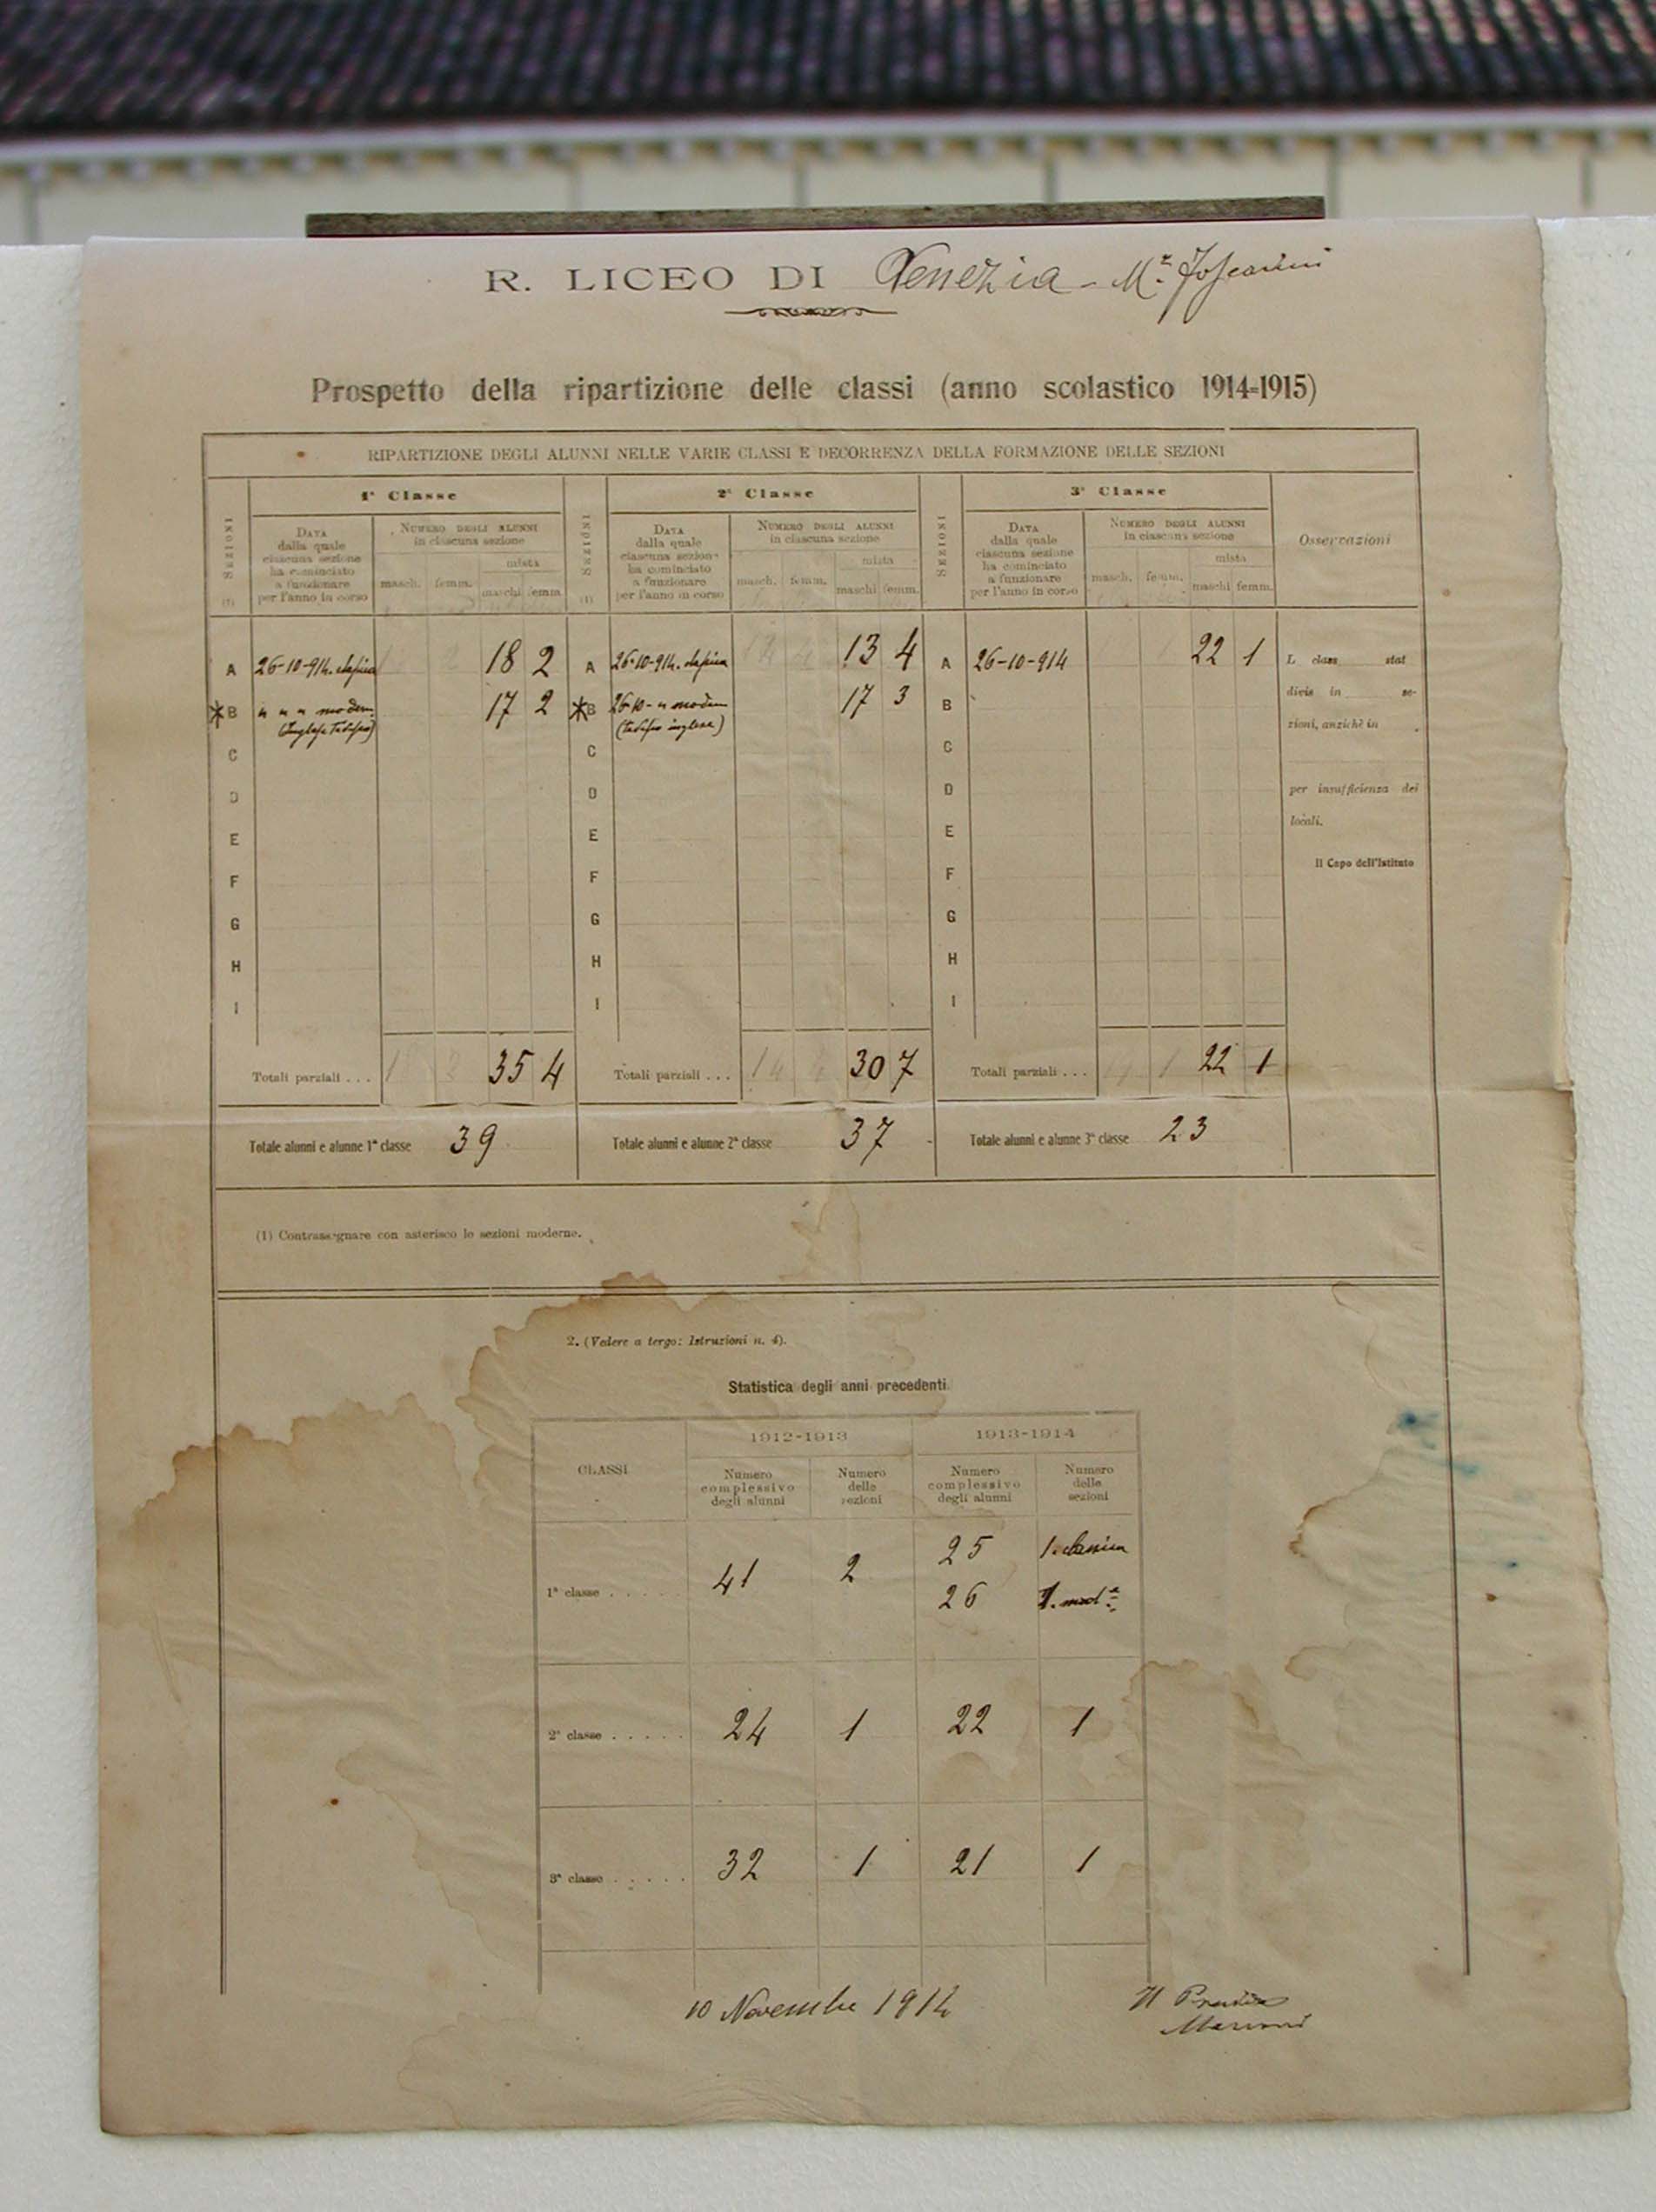 R. LICEO DI Venezia - M.º Foscarini
Prospetto della ripartizione delle classi (anno scolastico 1914=1915)
RIPARTIZIONE DEGLI ALUNNI NELLE VARIE CLASSI E DECORRENZA DELLA FORMAZIONE DELLE SEZIONI
SEZIONI (1)
1ª Classe
DATA
dalla quale
ciascuna sezione
ha cominciato
a funzionare
per l'anno in corso
NUMERO DEGLI ALUNNI
in ciascuna sezione
masch. femm.
mista
maschi femm.
SEZIONI (1)
2ª Classe
DATA
dalla quale
ciascuna sezione
ha cominciato
a funzionare
per l'anno in corso
NUMERO DEGLI ALUNNI
in ciascuna sezione
masch. femm.
mista
maschi femm.
SEZIONI
3ª Classe
DATA
dalla quale
ciascuna sezione
ha cominciato
a funzionare
per l'anno in corso
NUMERO DEGLI ALUNNI
in ciascuna sezione
masch. femm.
mista
maschi femm.
Osservazioni
A 26-10-914. classica 18 2 A 26-10-914. classica 13 4 A 26-10-914 22 1
*B " " " modern. 17 2 *B 26-10- " modern 17 3 B
(Inglese Tedesco) (tedesco inglese)
C C C
D D D
E E E
F F F
G G G
H H H
I I I
L class stat
divis in se-
zioni, anzichè in
per insufficienza dei
locali.
Il Capo dell'Istituto
Totali parziali . . . 35 4 Totali parziali . . . 30 7 Totali parziali . . . 22 1
Totale alunni e alunne 1ª classe 39 Totale alunni e alunne 2ª classe 37 Totale alunni e alunne 3ª classe 23
(1) Contrassegnare con asterisco le sezioni moderne.
2. (Vedere a tergo: Istruzioni n. 4).
Statistica degli anni precedenti
CLASSI
1912-1913
Numero
complessivo
degli alunni
Numero
delle
sezioni
1913-1914
Numero
complessivo
degli alunni
Numero
delle
sezioni
1ª classe . . . . . 41 2 25 1. classica
26 1. modª
2ª classe . . . . . 24 1 22 1
3ª classe . . . . . 32 1 21 1
10 Novembre 1914
Il Preside